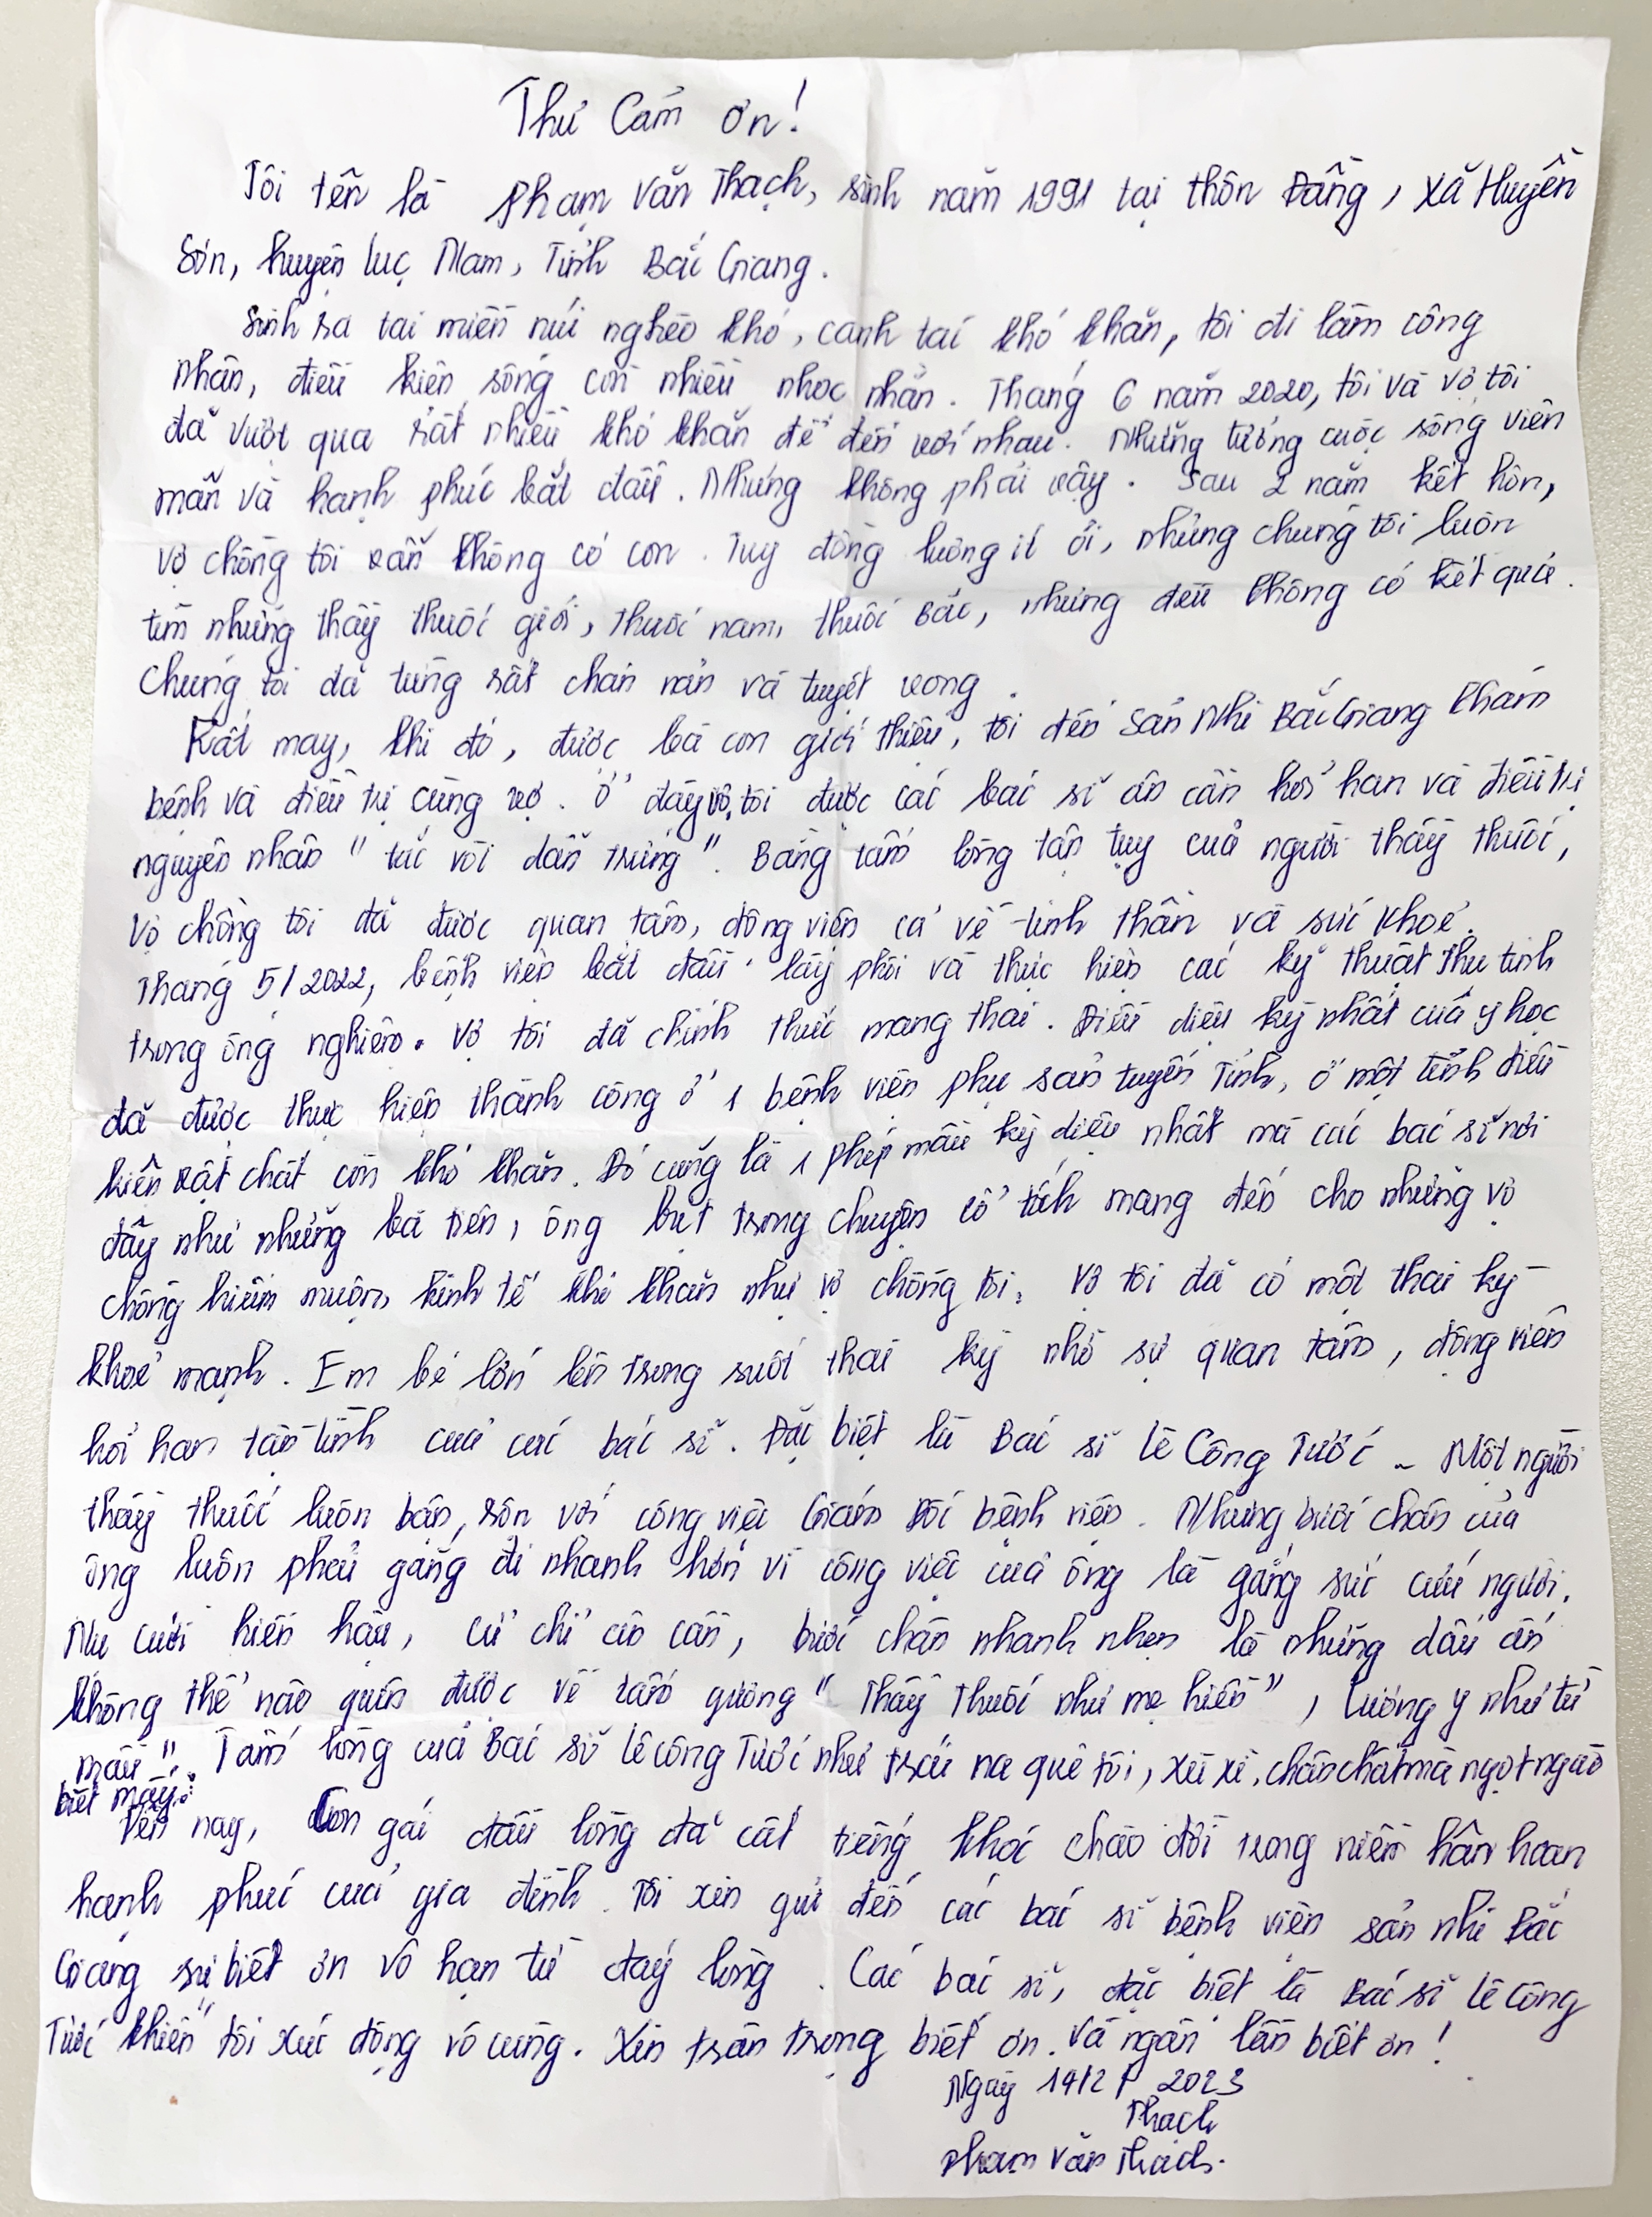 Thư Cảm ơn!
Tôi tên là Phạm Văn Thạch, sinh năm 1991 tại thôn Đồng, xã Huyền
Sơn, huyện Lục Nam, Tỉnh Bắc Giang.
Sinh ra tại miền núi nghèo khó, canh tác khó khăn, tôi đi làm công
nhân, điều kiện sống còn nhiều nhọc nhằn. Tháng 6 năm 2020, tôi và vợ tôi
đã vượt qua rất nhiều khó khăn để đến với nhau. Những tưởng cuộc sống viên
mãn và hạnh phúc bắt đầu. Nhưng không phải vậy. Sau 2 năm kết hôn,
vợ chồng tôi vẫn không có con. Tuy đồng lương ít ỏi, nhưng chúng tôi luôn
tìm những thầy thuốc giỏi, thuốc nam, thuốc Bắc, nhưng đều không có kết quả.
Chúng tôi đã từng rất chán nản và tuyệt vọng.
Rất may, khi đó, được bà con giới thiệu, tôi đến Sản Nhi Bắc Giang khám
bệnh và điều trị cùng vợ. Ở đây vc tôi được các bác sĩ ân cần hỏi han và điều trị
nguyên nhân " tắc vòi dẫn trứng ". Bằng tấm lòng tận tụy của người thầy thuốc,
vợ chồng tôi đã được quan tâm, động viên cả về tinh thần và sức khoẻ.
Tháng 5/2022, bệnh viện bắt đầu lấy phôi và thực hiện các kỹ thuật thụ tinh
trong ống nghiệm. Vợ tôi đã chính thức mang thai. Điều diệu kỳ nhất của y học
đã được thực hiện thành công ở 1 bệnh viện phụ sản tuyến Tỉnh, ở một tỉnh điều
kiện vật chất còn khó khăn. Đó cũng là 1 phép mầu kỳ diệu nhất mà các bác sĩ nơi
đây như những bà tiên, ông bụt trong chuyện cổ tích mang đến cho những vợ
chồng hiếm muộn, kinh tế khó khăn như vợ chồng tôi. Vợ tôi đã có một thai kỳ
khoẻ mạnh. Em bé lớn lên trong suốt thai kỳ nhờ sự quan tâm, động viên
hỏi han tận tình của các bác sĩ. Đặc biệt là Bác sĩ Lê Công Tước - Một người
thầy thuốc luôn bận rộn với công việc Giám Đốc bệnh viện. Nhưng bước chân của
ông luôn phải gắng đi nhanh hơn vì công việc của ông là gắng sức cứu người.
Nụ cười hiền hậu, cử chỉ ân cần, bước chân nhanh nhẹn là những dấu ấn
không thể nào quên được về tấm gương " Thầy Thuốc như mẹ hiền ", Lương y như từ
mẫu ". Tấm lòng của Bác sĩ Lê Công Tước như trái na quê tôi, xù xì, chân chất mà ngọt ngào
biết mấy.
Đến nay, Con gái đầu lòng đã cất tiếng khóc chào đời trong niềm hân hoan
hạnh phúc của gia đình. Tôi xin gửi đến các bác sĩ bệnh viện sản nhi Bắc
Giang sự biết ơn vô hạn từ đáy lòng. Các bác sĩ, đặc biệt là Bác sĩ Lê Công
Tước khiến tôi xúc động vô cùng. Xin trân trọng biết ơn và ngàn lần biết ơn!
Ngày 19/2/ 2023
Thạch
Phạm Văn Thạch.